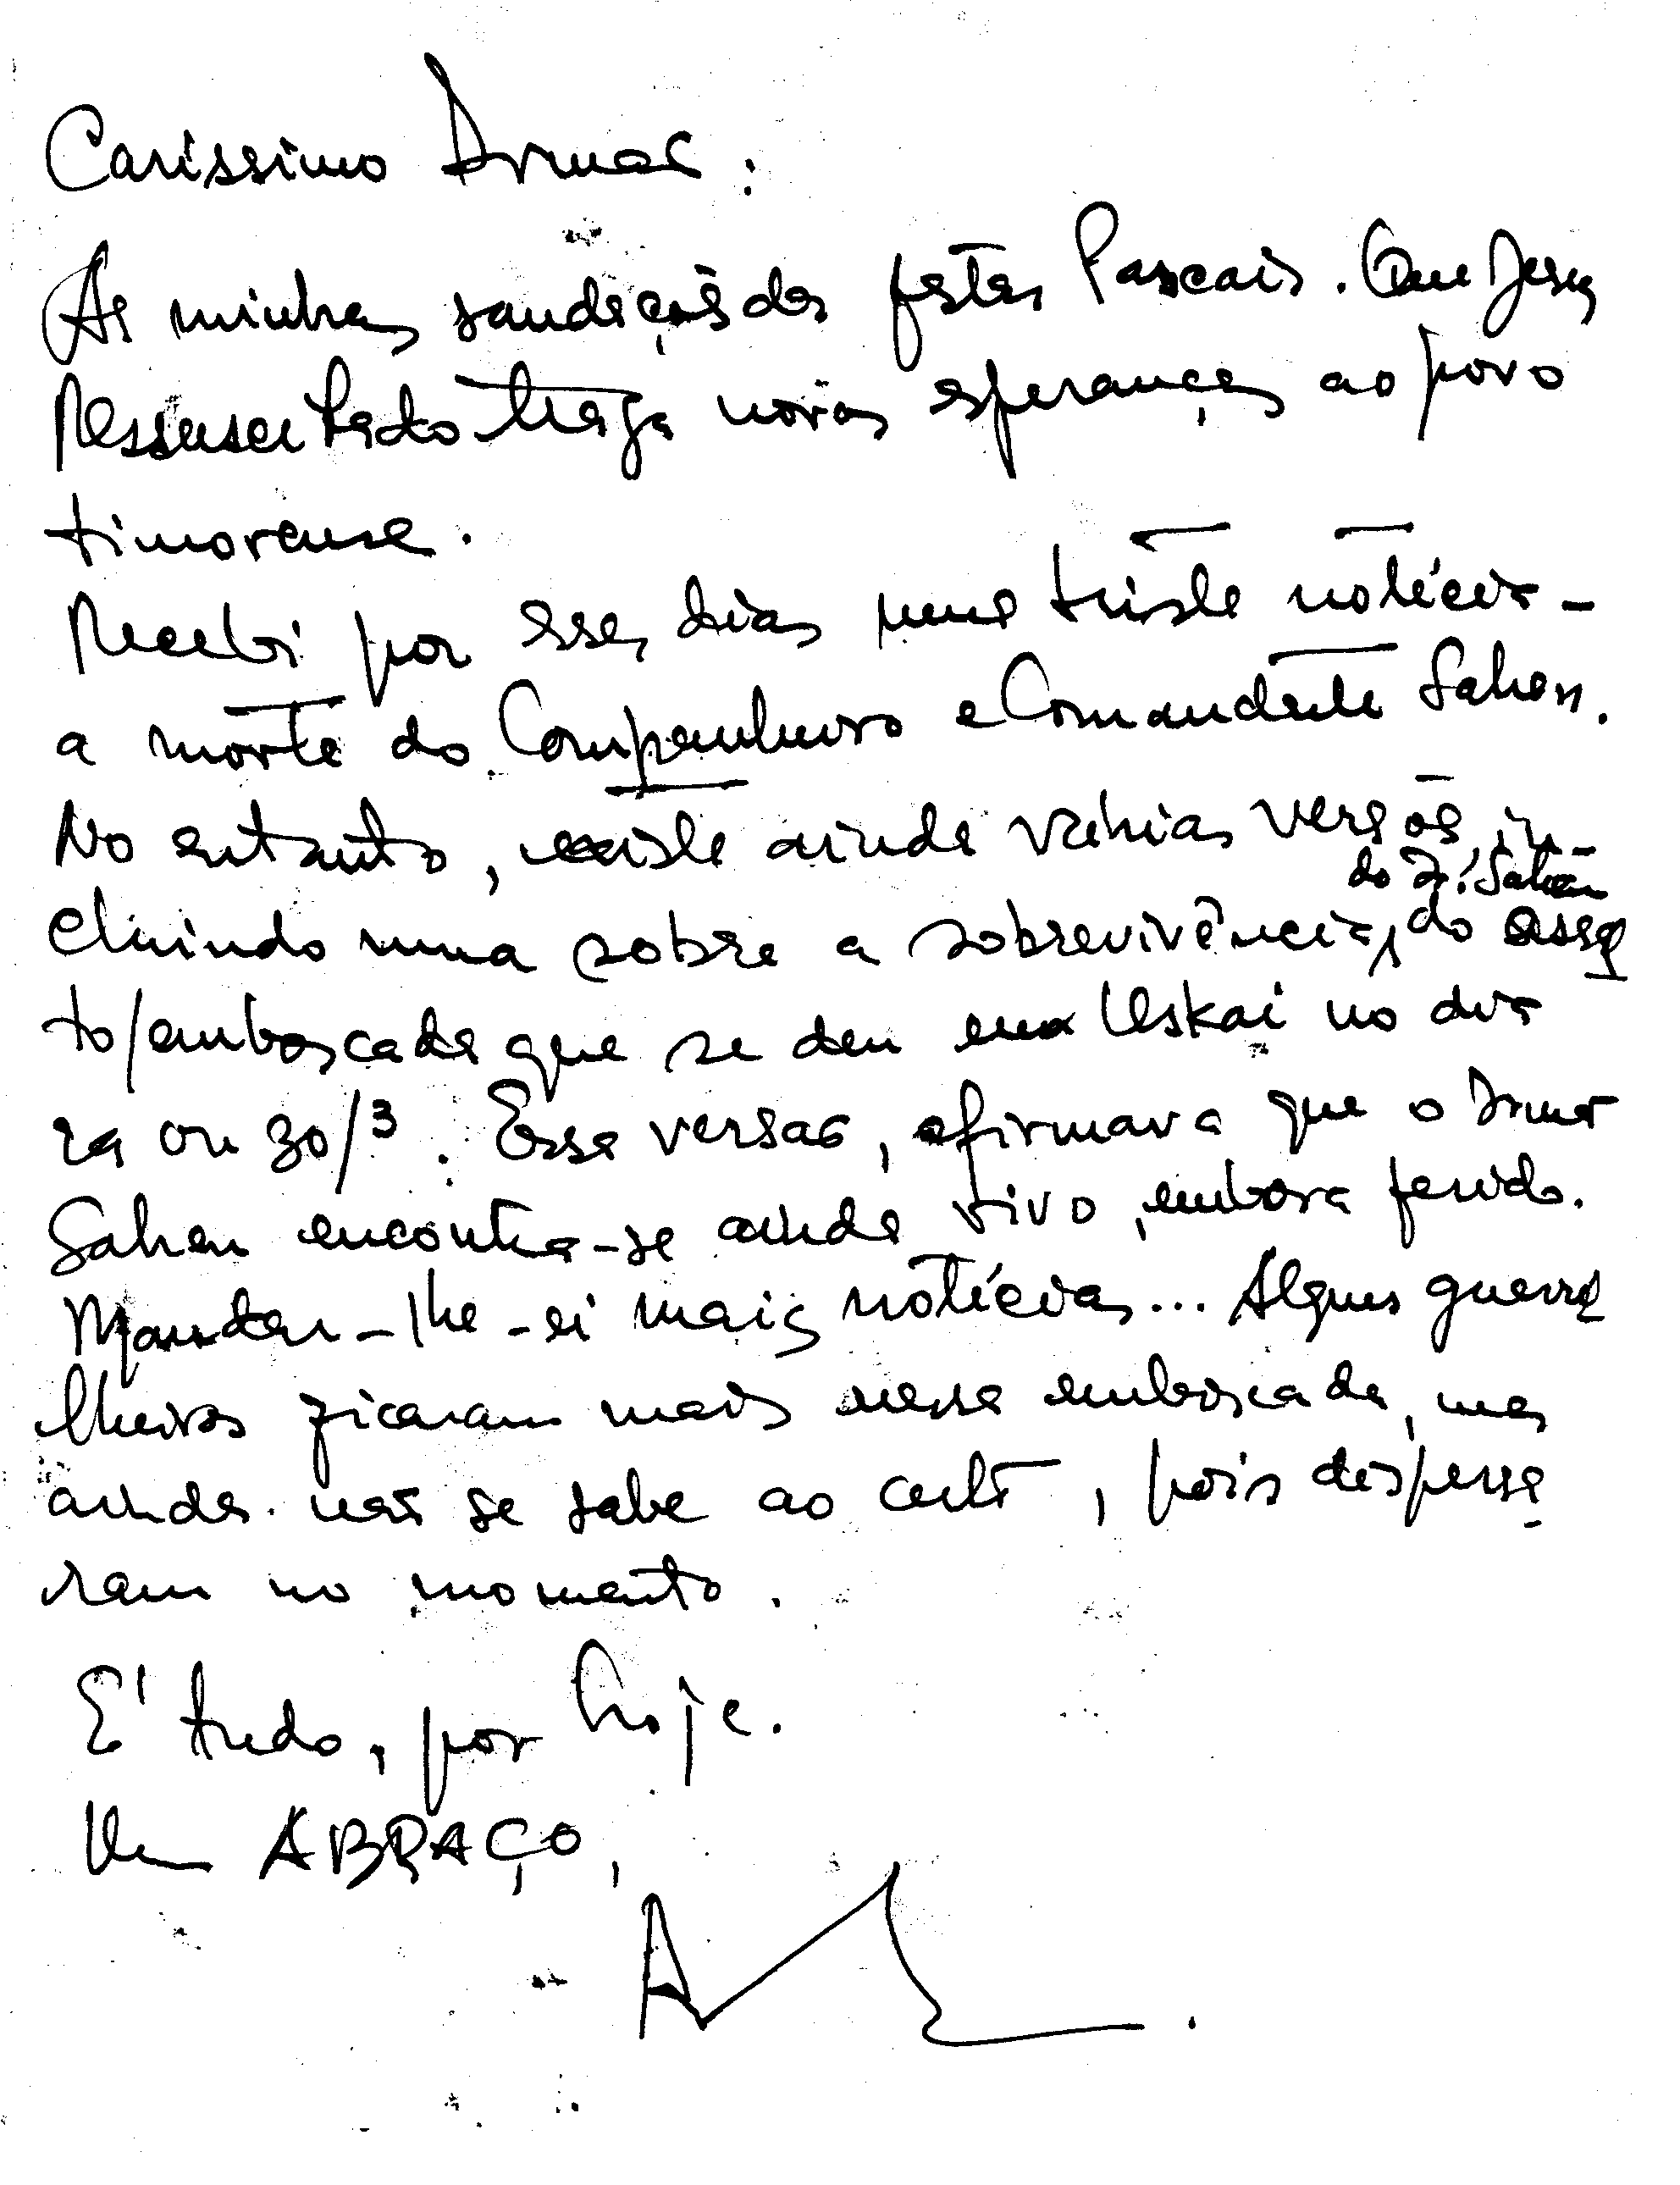 Caríssimo Irmão:
As minhas saudações das festas Pascais. Que Jesus
Ressuscitado traga novas esperanças ao povo
timorense.
Recebi por esses dias uma triste notícia -
a morte do Companheiro e Comandante Sahen.
No entanto, existe ainda várias versões, in-
do Ir. Sahen
cluindo uma sobre a sobrevivência, do assal
to/emboscada que se deu em Uskai no dia
29 ou 30/3. Essa versão, afirmava que o Irmão
Sahen encontra-se ainda vivo, embora ferido.
Mandar-lhe-ei mais notícias... Alguns guerri
lheiros ficaram mais nessa emboscada, mas
ainda não se sabe ao certo, pois dispersa
ram no momento.
É tudo, por hoje.
Um ABRAÇO,